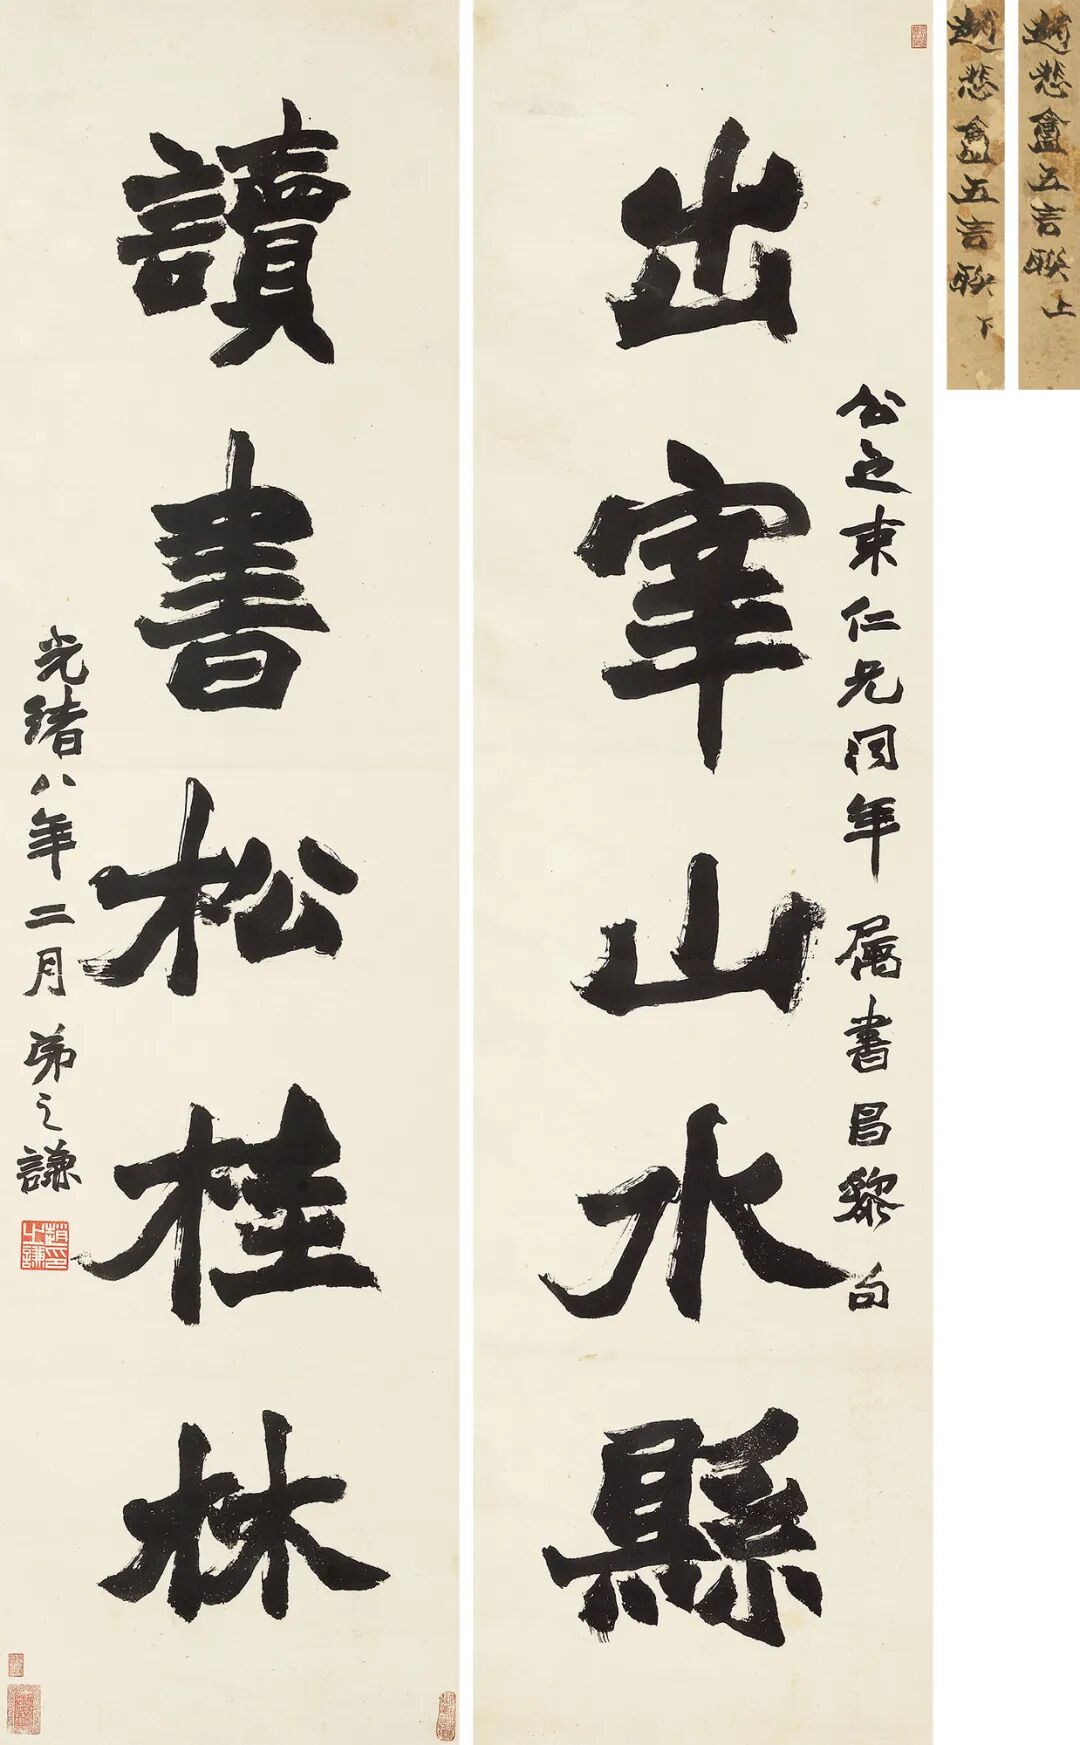 出宰山水縣
公之束仁兄同年 屬書昌黎句
讀書松桂林
光緒八年二月 弟之謙
趙之謙印
趙悲盦五言聯 上
趙悲盦五言聯 下